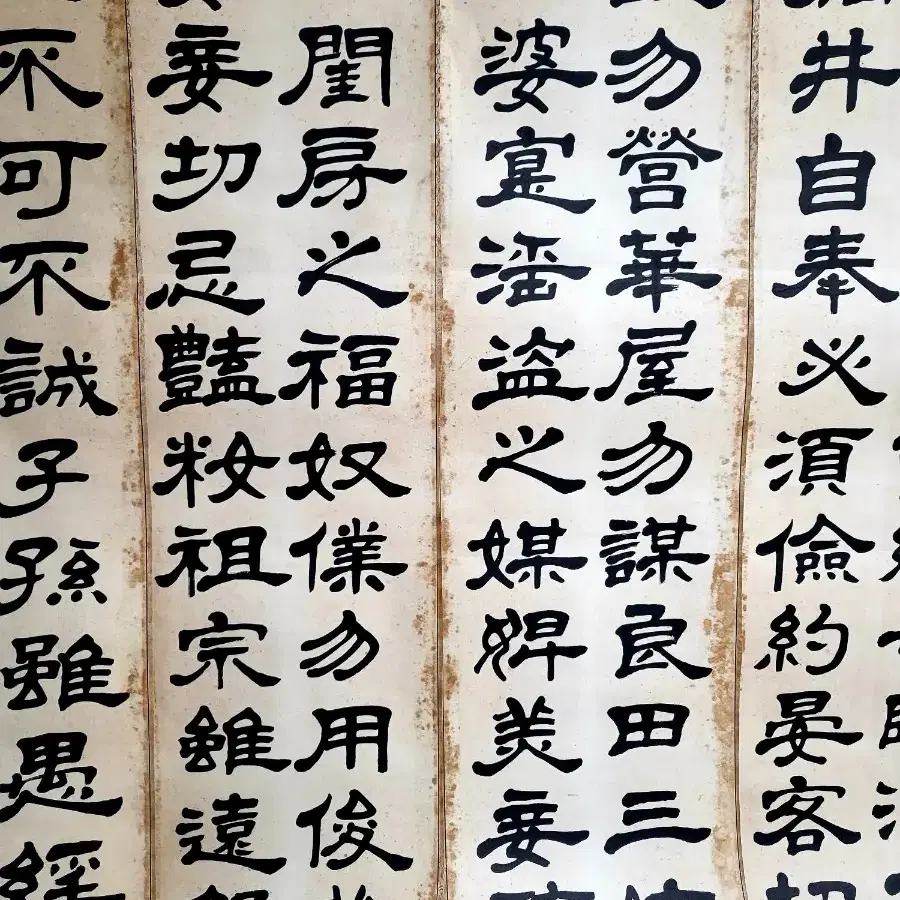 井自奉必須儉約晏客切
勿營華屋勿謀良田三
婆寔淫盜之媒婢美妾
閨房之福奴僕勿用俊美
妾切忌豔籹祖宗雖遠
不可不誠子孫雖愚經